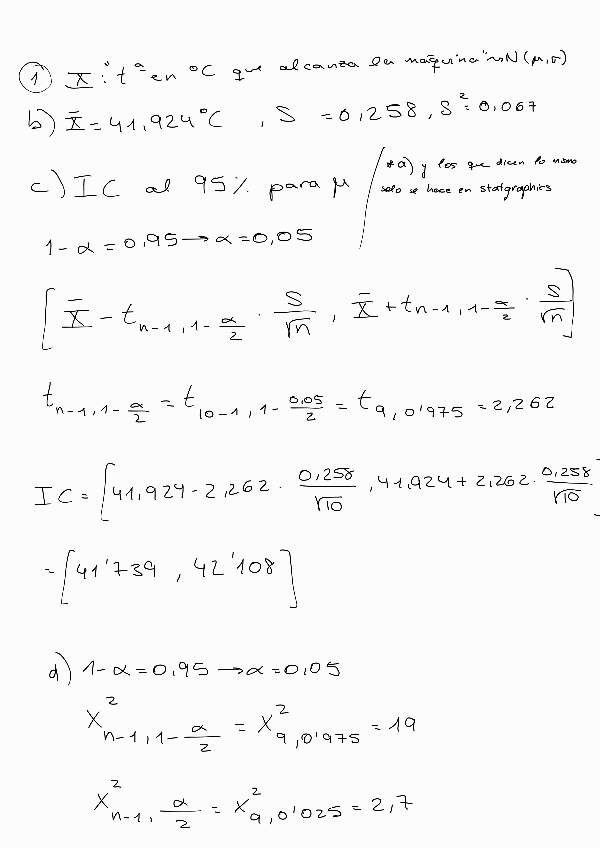 ① X: "tª en °C que alcanza la máquina" ~ N(μ,σ)
b) X̄ = 41,924°C , S = 0,258 , S² = 0,067
c) IC al 95% para μ
*a) y los que dicen lo mismo
solo se hace en statgraphics
1-α = 0,95 → α = 0,05
[X̄ - t_{n-1, 1-α/2} · S/√n , X̄ + t_{n-1, 1-α/2} · S/√n]
t_{n-1, 1-α/2} = t_{10-1, 1-0,05/2} = t_{9, 0'975} = 2,262
IC = [41,924 - 2,262 · 0,258/√10 , 41,924 + 2,262 · 0,258/√10]
= [41'739 , 42'108]
d) 1-α = 0,95 → α = 0,05
X²_{n-1, 1-α/2} = X²_{9, 0'975} = 19
X²_{n-1, α/2} = X²_{9, 0'025} = 2,7